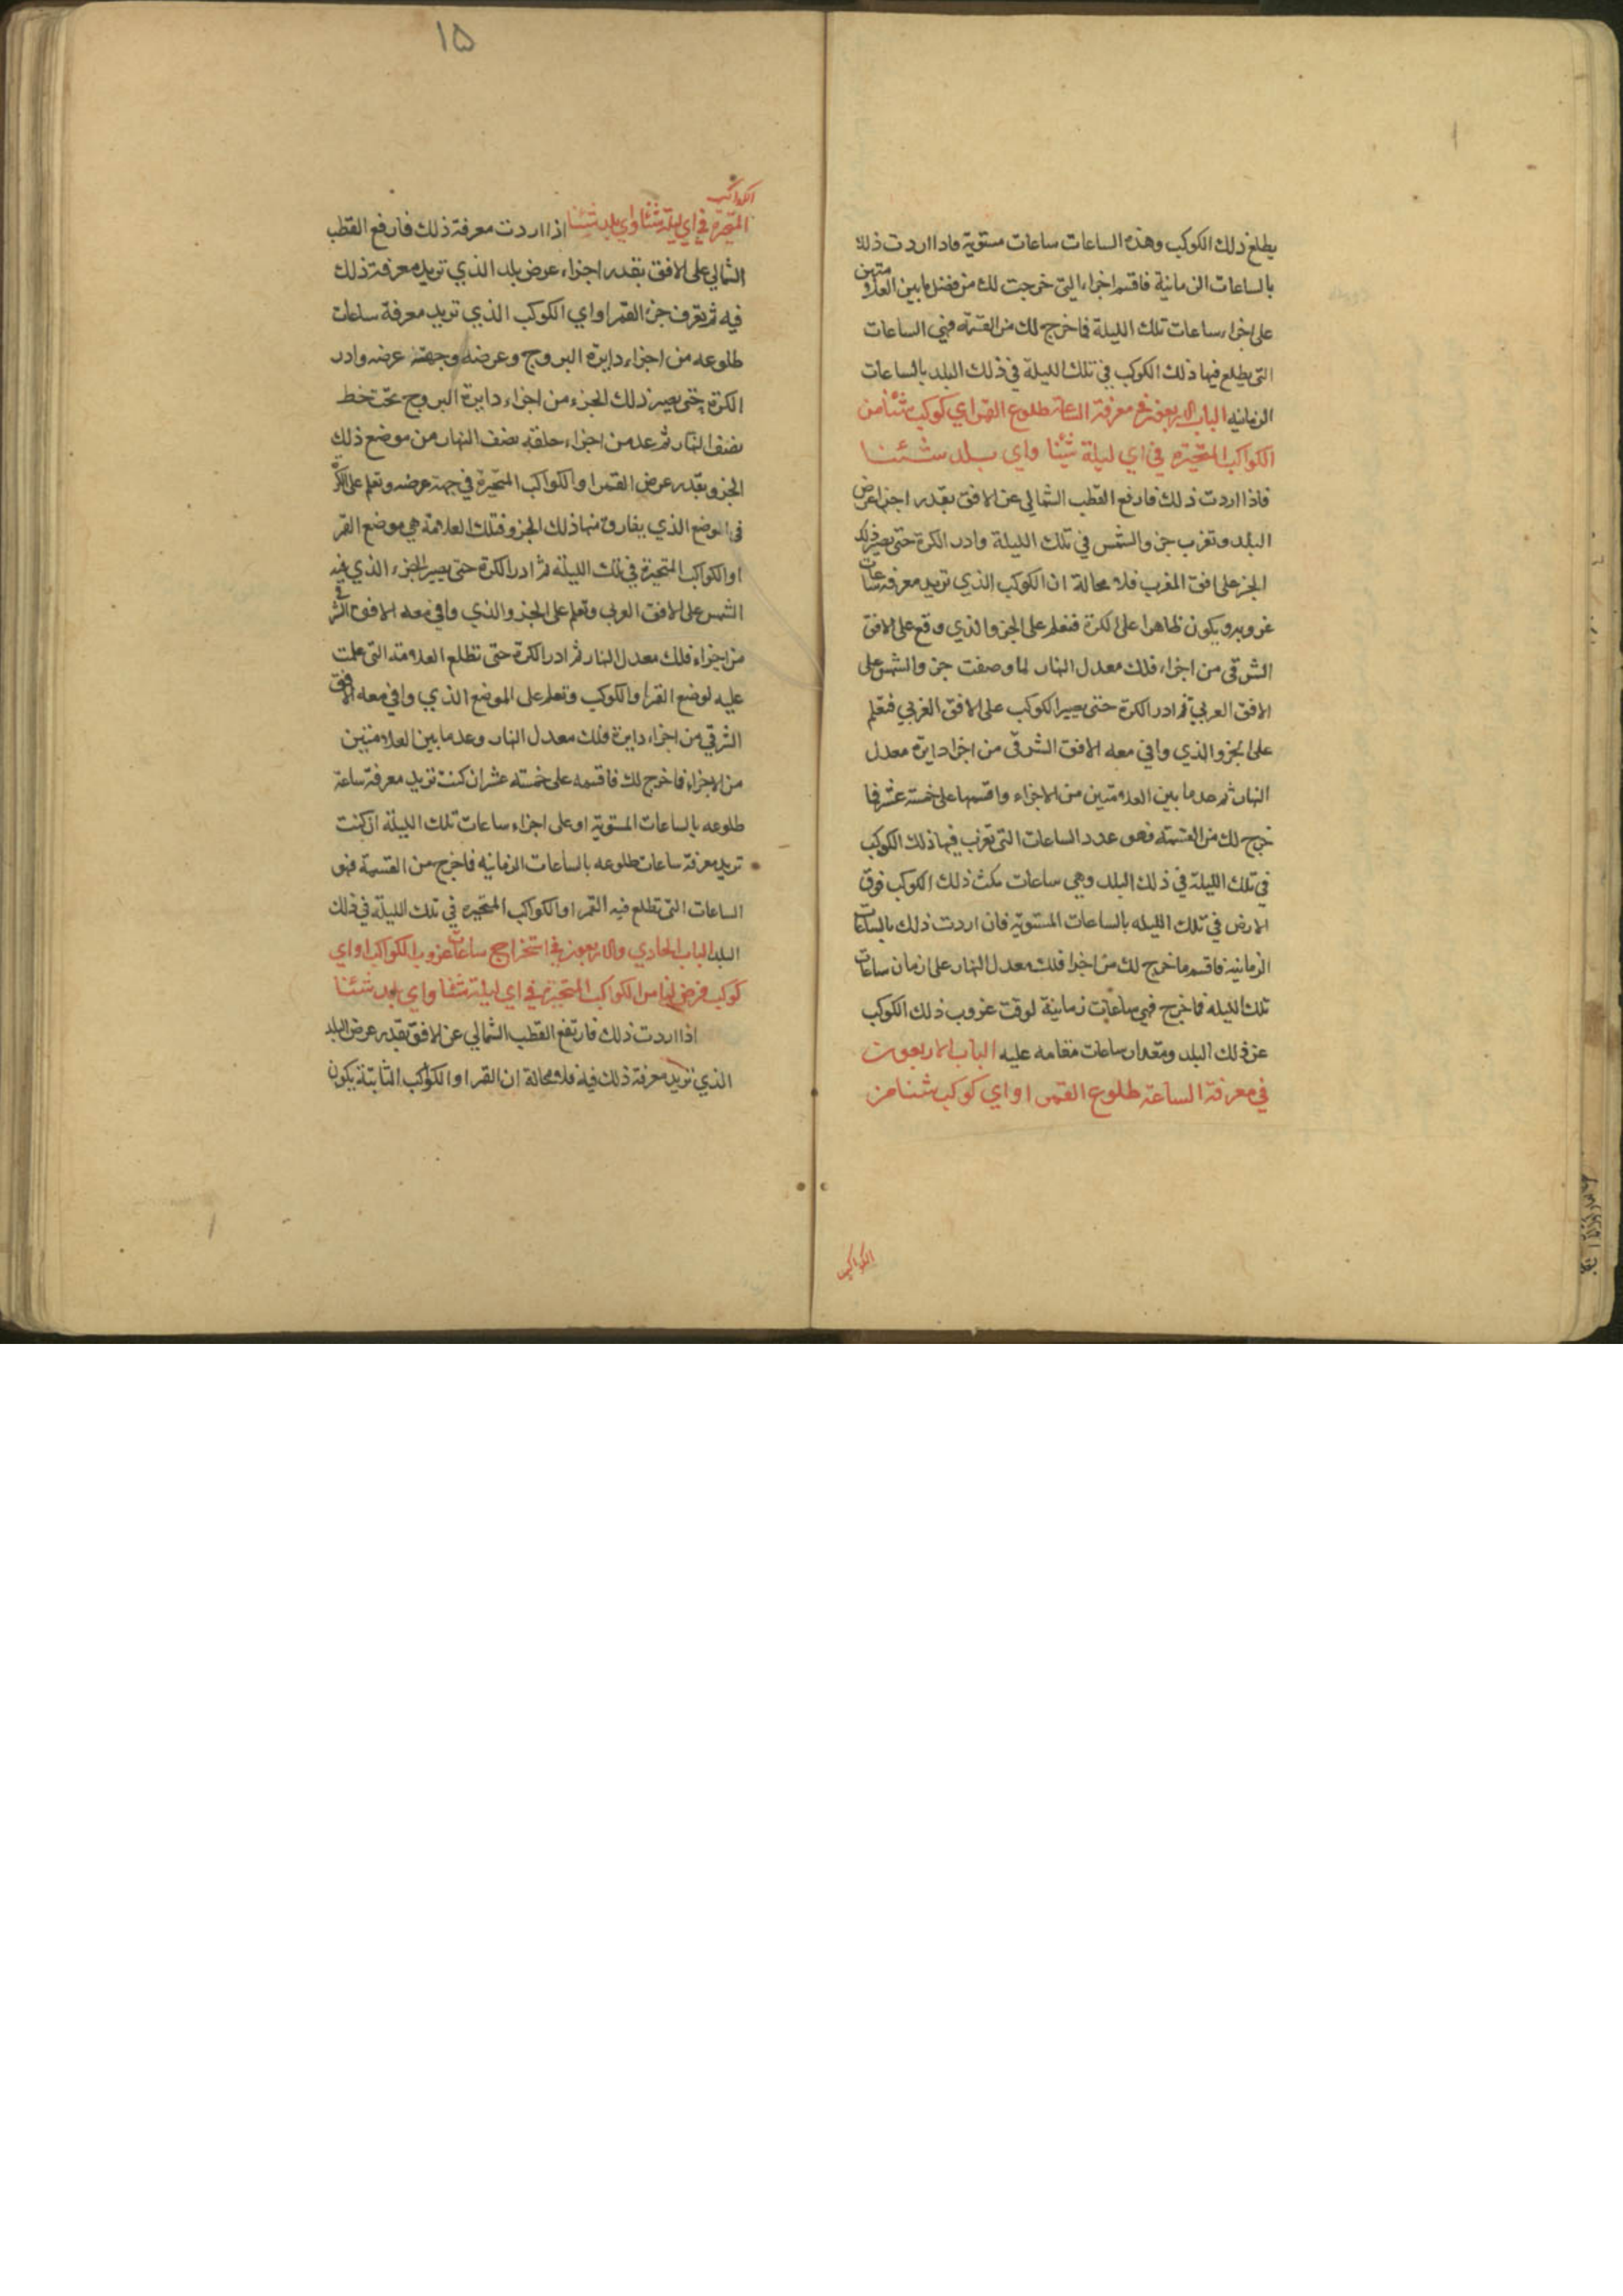 يطلع ذلك الكوكب وهذه الساعات ساعات مستوية فاذا اردت ذلك
بالساعات الزمانية فاقسم اجزاء التي خرجت لك من فضل ما بين العلامتين
على اجزاء ساعات تلك الليلة فما خرج لك من القسمة فهي الساعات
التي يطلع فيها ذلك الكوكب في تلك الليلة في ذلك البلد بالساعات
الزمانيه الباب في معرفة الساعة طلوع القمر اواي كوكب شئنا من
الكواكب المتحيرة في اي ليلة شئنا واي بلد شئنا
فاذا اردت ذلك فارفع القطب الشمالي عن الافق بقدر اجزا عرض
البلد وتغرب جزو الشمس في تلك الليلة وادر الكرة حتى يصير ذلك
الجز على افق المغرب فلا محالة ان الكوكب الذي تريد معرفة ساعات
غروبه ويكون ظاهرا على الكرة فتعلم على الجزو الذي وقع على الافق
الشرقي من اجزاء فلك معدل النهار لما وصفت جزو الشمس على
الافق الغربي ثم ادر الكرة حتى يصير الكوكب على الافق الغربي فتعلم
على الجزو الذي وافي معه الافق الشرقي من اجزا دايرة معدل
النهار ثم عد ما بين العلامتين من الاجزاء واقسمها على خمسة عشر فما
خرج لك من القسمة فهو عدد الساعات التي تغرب فيها ذلك الكوكب
في تلك الليلة في ذلك البلد وهي ساعات مكث ذلك الكوكب فوق
الارض في تلك الليله بالساعات المستوية فان اردت ذلك بالساعات
الزمانية فاقسم ما خرج لك من اجزا فلك معدل النهار على ازمان ساعات
تلك الليله فما خرج فهي ساعات زمانية لوقت غروب ذلك الكوكب
عن ذلك البلد ومقدار ساعات مقامه عليه الباب الاربعون
في معرفة الساعة طلوع القمر اواي كوكب شئنا من
الكواكب
١٥
الكواكب
المتحيرة في اي ليلة شئنا واي بلد شئنا اذا اردت معرفة ذلك فارفع القطب
الشمالي على الافق بقدر اجزاء عرض بلد الذي تريد معرفة ذلك
فيه ثم تعرف جزء القمر اواي الكوكب الذي تريد معرفة ساعات
طلوعه من اجزاء دايرة البروج وعرضه وجهة عرضه وادر
الكرة حتى يصير ذلك الجزء من اجزاء دايرة البروج تحت خط
نصف النهار ثم عد من اجزاء حلقه نصف النهار من موضع ذلك
الجزو بقدر عرض القمر او الكواكب المتحيرة في جهة عرضه وتعلم على الكرة
في الموضع الذي يفارق منها ذلك الجزو فتلك العلامة هي موضع القمر
او الكواكب المتحيرة في تلك الليلة ثم ادر الكرة حتى يصير الجزء الذي فيه
الشمس على الافق الغربي وتعلم على الجزو الذي وافي معه الافق الشرقي
من اجزاء فلك معدل النهار ثم ادر الكرة حتى تطلع العلامة التي علمت
عليه لوضع القمر او الكوكب وتعلم على الموضع الذي وافي معه الافق
الشرقي من اجزاء دايرة فلك معدل النهار وعد ما بين العلامتين
من الاجزاء فما خرج لك فاقسمه على خمسته عشر ان كنت تريد معرفة ساعة
طلوعه بالساعات المستوية او على اجزاء ساعات تلك الليلة ان كنت
تريد معرفة ساعات طلوعه بالساعات الزمانيه فما خرج من القسمة فهو
الساعات التي تطلع فيه القمر او الكواكب المتحيره في تلك الليلة في ذلك
البلد الباب الحادي والاربعون في استخراج ساعات غروب الكواكب اواي
كوكب فرض لنا من الكواكب المتحيرة في اي ليلة شئنا واي بلد شئنا
اذا اردت ذلك فارتفع القطب الشمالي عن الافق بقدر عرض البلد
الذي تريد معرفة ذلك فيه فلا محالة ان القمر او الكواكب الثابتة يكون